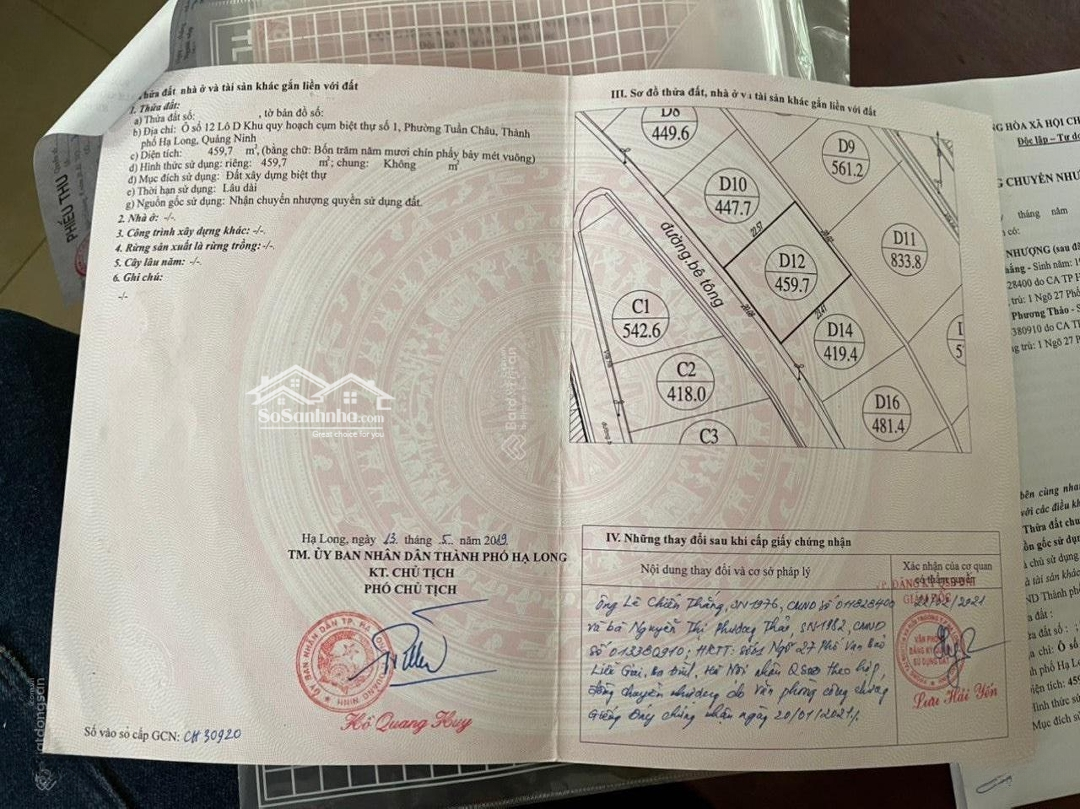 Thửa đất, nhà ở và tài sản khác gắn liền với đất
1. Thửa đất:
a) Thửa đất số: , tờ bản đồ số:
b) Địa chỉ: Ô số 12 Lô D Khu quy hoạch cụm biệt thự số 1, Phường Tuần Châu, Thành
phố Hạ Long, Quảng Ninh
c) Diện tích: 459,7 m², (bằng chữ: Bốn trăm năm mươi chín phẩy bảy mét vuông)
d) Hình thức sử dụng: riêng: 459,7 m²; chung: Không m²
đ) Mục đích sử dụng: Đất xây dựng biệt thự
e) Thời hạn sử dụng: Lâu dài
g) Nguồn gốc sử dụng: Nhận chuyển nhượng quyền sử dụng đất.
2. Nhà ở: -/-.
3. Công trình xây dựng khác: -/-.
4. Rừng sản xuất là rừng trồng: -/-.
5. Cây lâu năm: -/-.
6. Ghi chú:
-/-
SoSanhnha.com
Great choice for you
Hạ Long, ngày 13 tháng 5 năm 2019
TM. ỦY BAN NHÂN DÂN THÀNH PHỐ HẠ LONG
KT. CHỦ TỊCH
PHÓ CHỦ TỊCH
Hồ Quang Huy
Số vào sổ cấp GCN: CH 30920
III. Sơ đồ thửa đất, nhà ở và tài sản khác gắn liền với đất
D8
449.6
D9
561.2
D10
447.7
D11
833.8
D12
459.7
22.57
23.41
đường bê tông
C1
542.6
D14
419.4
C2
418.0
D16
481.4
C3
Vỉa hè
IV. Những thay đổi sau khi cấp giấy chứng nhận
Nội dung thay đổi và cơ sở pháp lý
Xác nhận của cơ quan
có thẩm quyền
Ông Lê Chiến Thắng, SN 1976, CMND số 011828400
và bà Nguyễn Thị Phương Thảo, SN 1982, CMND
Số 013380910; HKTT: Ngõ 27 Phố Vạn Bảo
Liễu Giai, Ba Đình, Hà Nội nhận QSDĐ theo hợp
đồng chuyển nhượng do Văn phòng công chứng
Giếng Đáy chứng nhận ngày 20/01/2021/.
GIÁM ĐỐC
22/02/2021
VĂN PHÒNG
ĐĂNG KÝ QUYỀN
SỬ DỤNG ĐẤT
Lưu Hải Yến
PHIẾU THU
NG HÒA XÃ HỘI CH
Độc lập – Tự do
G CHUYỂN NHƯỢ
tháng năm
có:
NHƯỢNG (sau đâ
ắng - Sinh năm: 19
28400 do CA TP H
trú: 1 Ngõ 27 Phố
Phương Thảo - S
380910 do CA T
ng trú: 1 Ngõ 27 P
bên cùng nhau
với các điều kh
Thửa đất chu
ồn gốc sử dụn
à chủ sử dụng
tài sản khác
ND Thành phố
đất :
đất số : ;
chỉ: Ô số
phố Hạ Lon
Diện tích: 459
Hình thức sử
Mục đích sử
Batdongsan